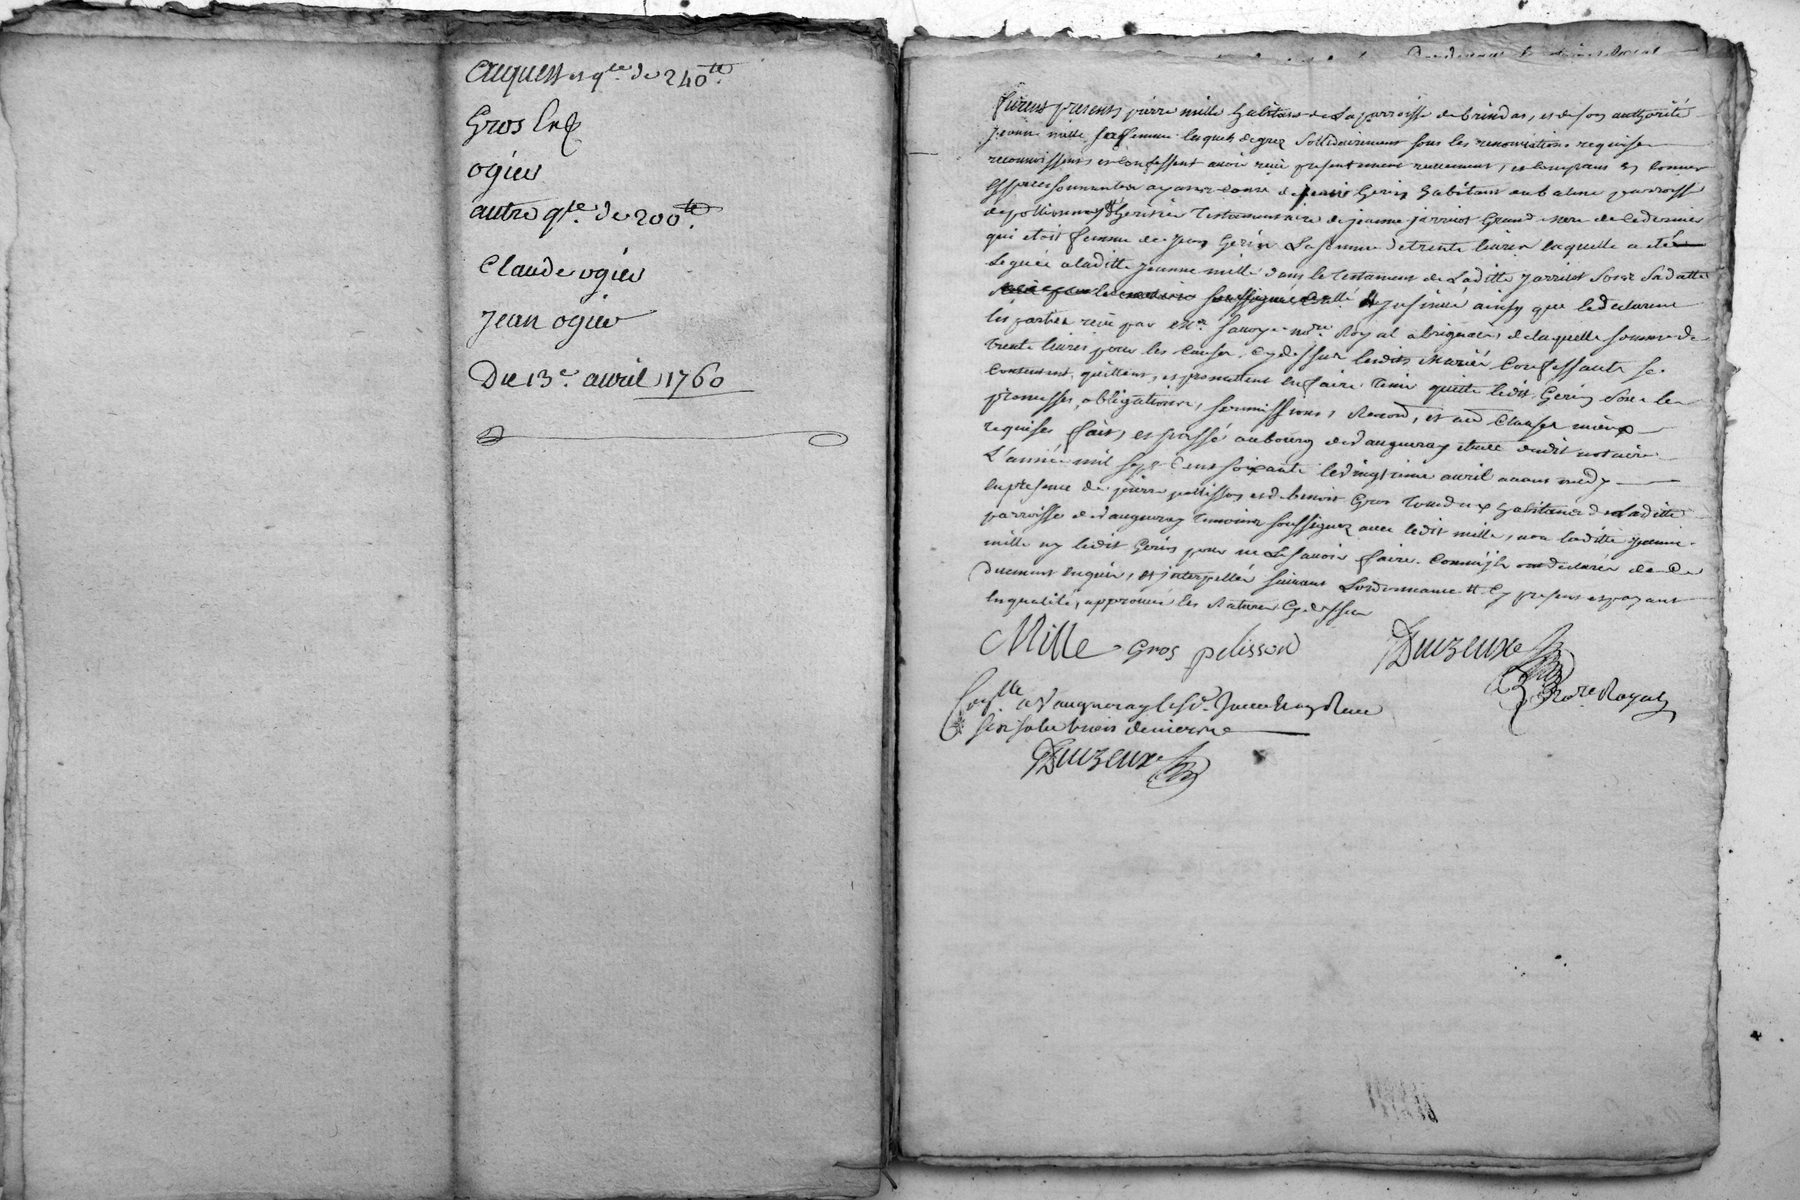 acquest et qte. de 240tt.
Gros
ogier
autre qte. de 200tt.
Claude ogier
Jean ogier
Du 13e. avril 1760
furent presents pierre mille habitans de la parroisse de brindas, et de son authorité
jeanne mille sa femme lesquels de grez sollidairement sous les renonciations requises
reconnoissent et confessent avoir reçu presentement reellement, et comptant en bonnes
Espèces sonnantes ayant cours de Gerin habitant en parroisse
de pollionnay heritier testamentaire de jeanne jarricot Grand mere de ce dernier
qui etoit femme de Jean Gerin La somme de trente livres laquelle a eté
Leguée a laditte jeanne mille dans le testament de Laditte jarricot sous sa datte
soussigné insinué ainsy que le declarent
les parties reçu par me. notre. Royal a brignais, de laquelle somme de
trente livres pour les causes cy dessus lesdits mariés confessants se
contentent, quittent, et promettent en faire tenir quitte ledit Gerin sous les
promesses, obligations, soumissions, et clauses
requises fait et passé au bourg de vaugneray etude dudit notaire
L'année mil sept cens soixante le vingtieme avril avant midy
en presence de pierre pelisson et de benoit Gros tous deux habitans de laditte
parroisse de vaugneray temoins soussignez avec ledit mille, non laditte jeanne
mille ny ledit Gerin pour ne le savoir faire comm'ils ont declaré de ce
duement enquis, et interpellés suivant L'ordonnance
approuvé les Ratures Cy dessus
Mille Gros pelisson Duizeux
notre Royal
Conlle a Vaugneray le Reçu
six sols
Duizeux